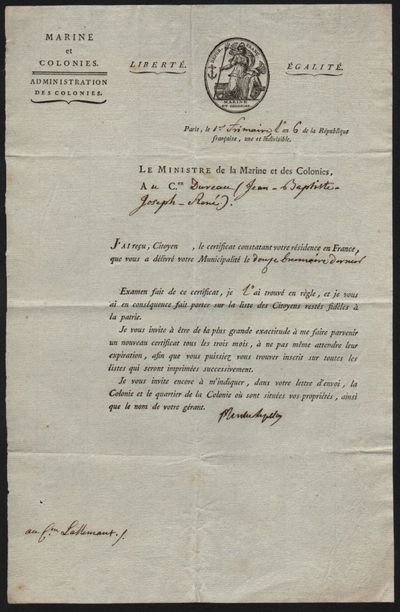 MARINE
et
COLONIES.
ADMINISTRATION
DES COLONIES.
LIBERTÉ. ÉGALITÉ.
MARINE
ET COLONIES.
Paris, le 1er frimaire, l'an 6 de la République
française, une et indivisible.
LE MINISTRE de la Marine et des Colonies,
Au C.en Dureau (Jean-Baptiste-
Joseph-René).
J'AI reçu, Citoyen, le certificat constatant votre résidence en France,
que vous a délivré votre Municipalité le douze brumaire dernier
Examen fait de ce certificat, je l'ai trouvé en règle, et je vous
ai en conséquence fait porter sur la liste des Citoyens restés fidèles à
la patrie.
Je vous invite à être de la plus grande exactitude à me faire parvenir
un nouveau certificat tous les trois mois, à ne pas même attendre leur
expiration, afin que vous puissiez vous trouver inscrit sur toutes les
listes qui seront imprimées successivement.
Je vous invite encore à m'indiquer, dans votre lettre d'envoi, la
Colonie et le quartier de la Colonie où sont situées vos propriétés, ainsi
que le nom de votre gérant.
au C.en Lallemant.